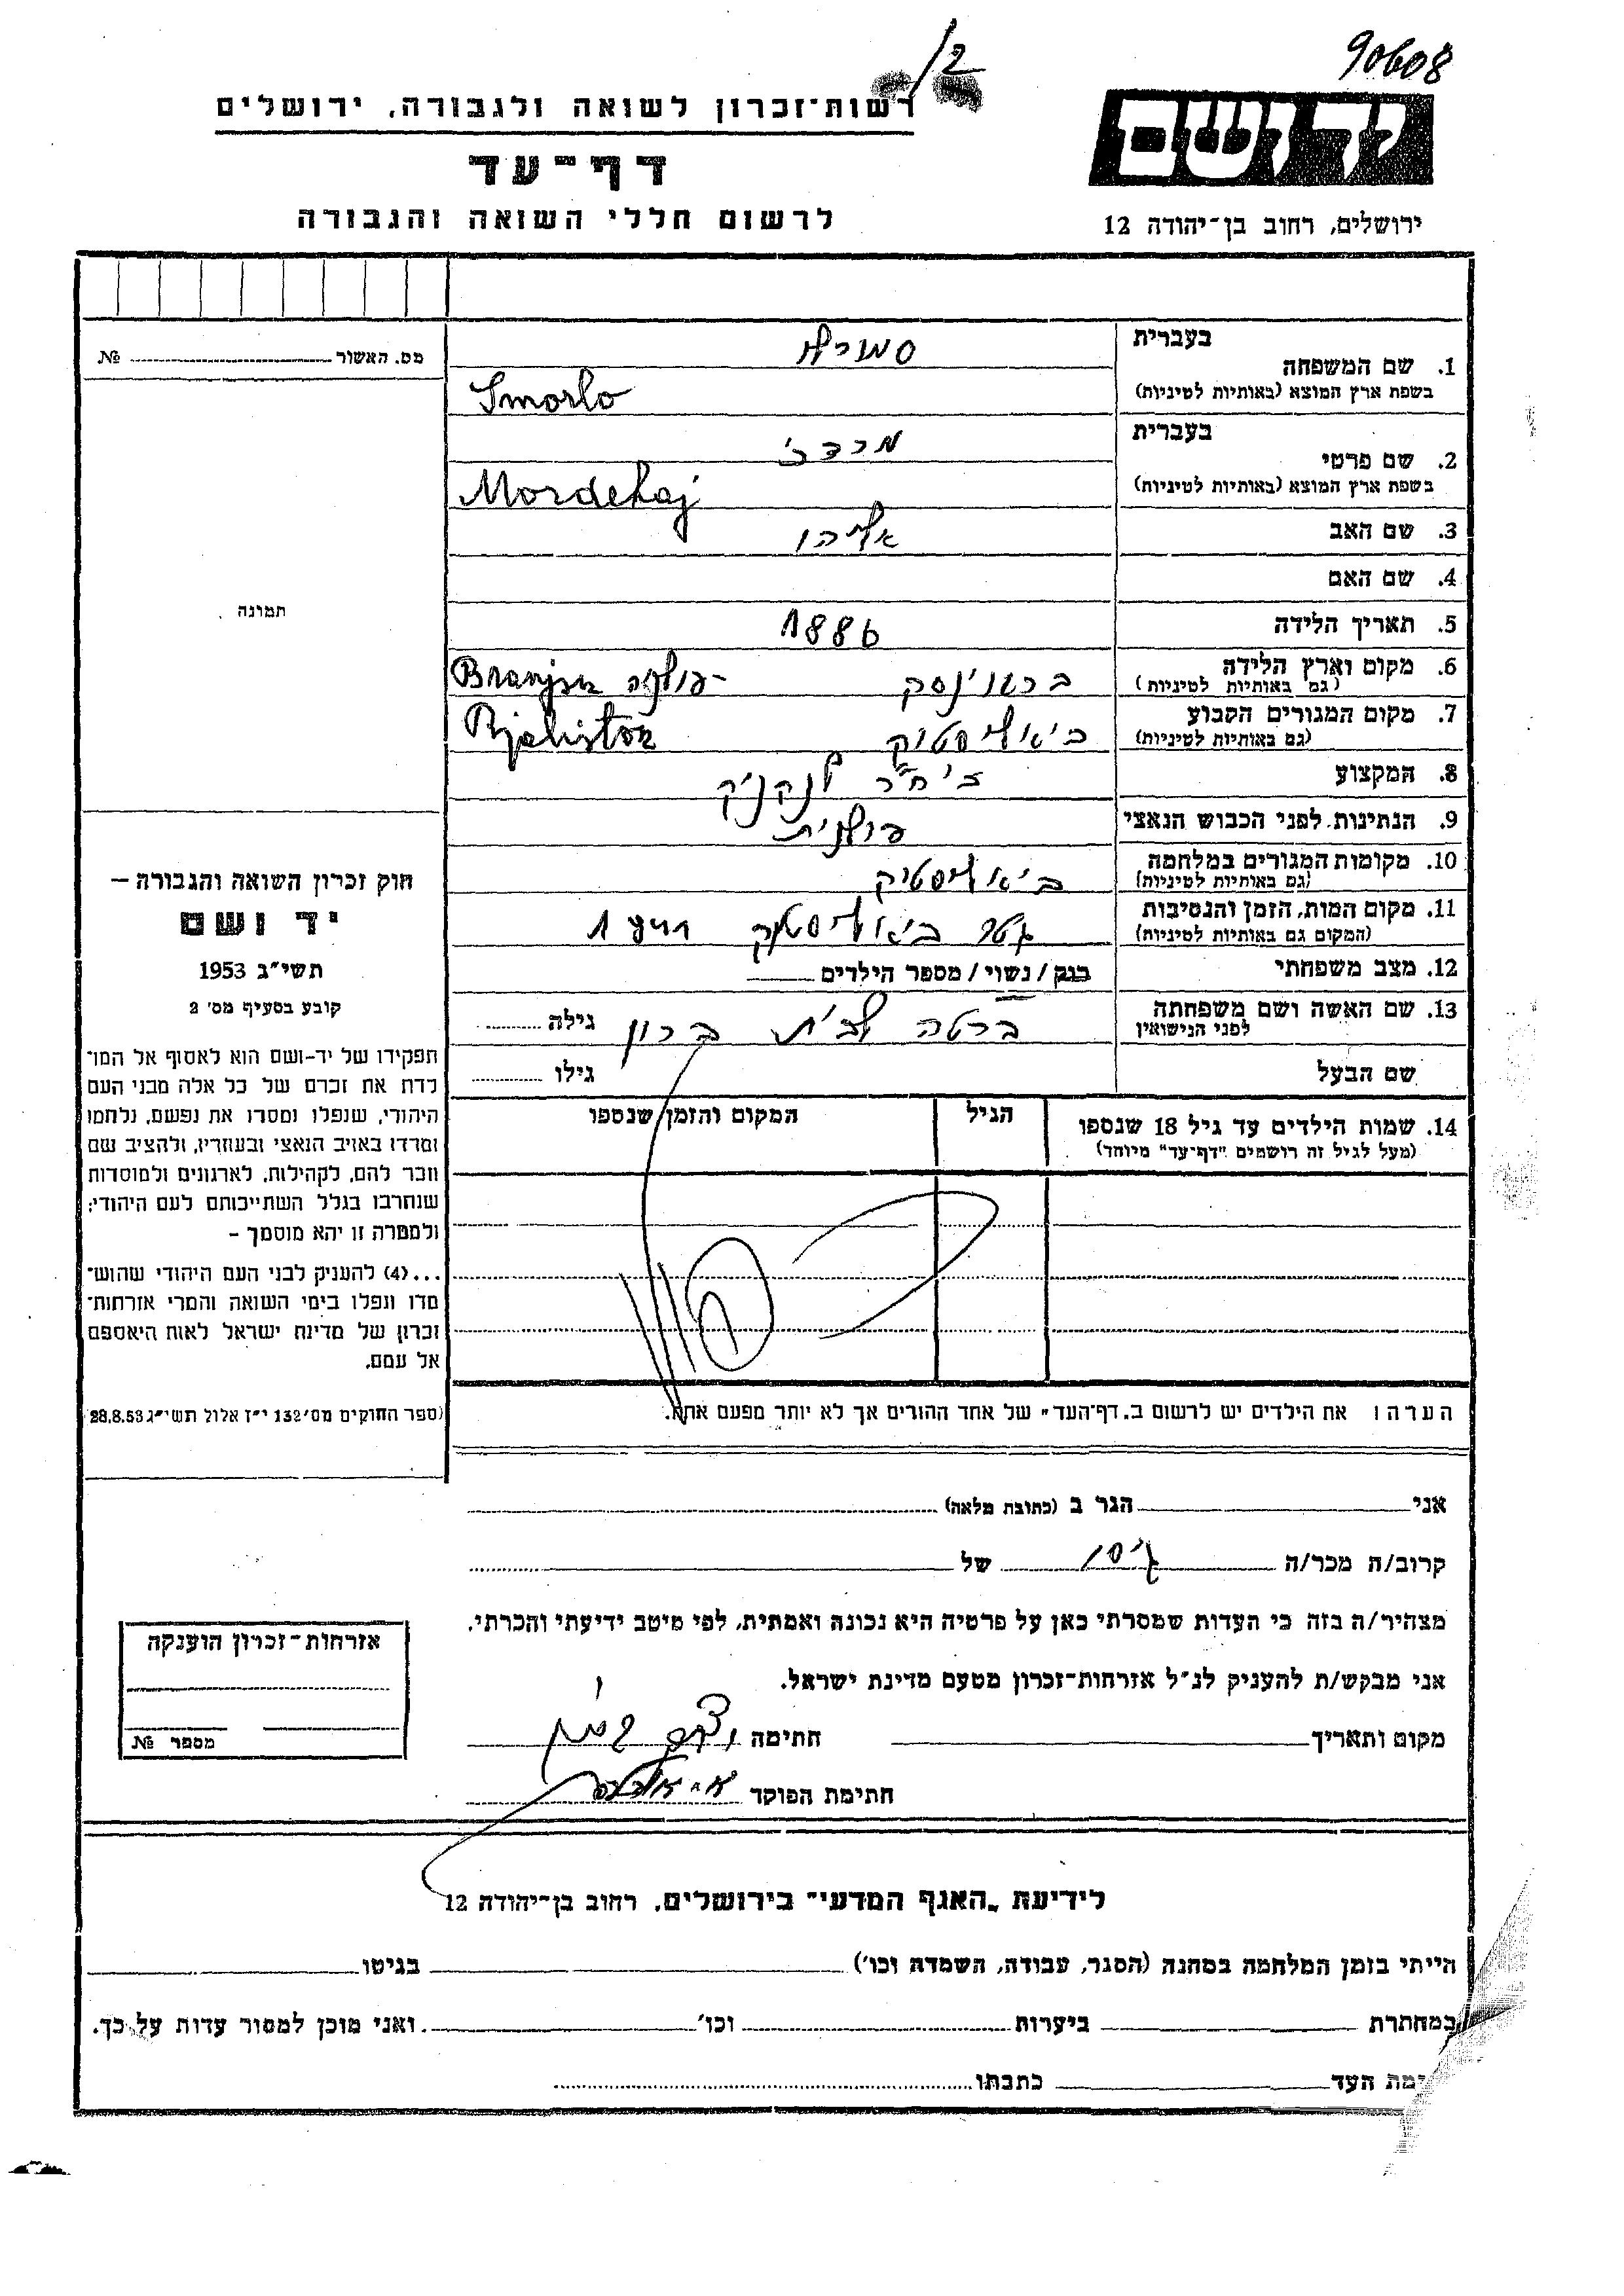 90608
/2
יד ושם
רשות־זכרון לשואה ולגבורה, ירושלים
דף־עד
לרשום חללי השואה והגבורה
ירושלים, רחוב בן־יהודה 12
מס. האשור № 
תמונה
בעברית
1. שם המשפחה סמורלו
בשפת ארץ המוצא (באותיות לטיניות) Smorlo
בעברית
2. שם פרטי מרדכי
בשפת ארץ המוצא (באותיות לטיניות) Mordehaj
3. שם האב אליהו
4. שם האם
5. תאריך הלידה 1886
6. מקום וארץ הלידה
(גם באותיות לטיניות) פולניה Branjsk
7. מקום המגורים הקבוע
(גם באותיות לטיניות) ביאליסטוק Bjalistok
8. המקצוע
9. הנתינות לפני הכבוש הנאצי פולנית
10. מקומות המגורים במלחמה
(גם באותיות לטיניות) ביאליסטוק
11. מקום המות, הזמן והנסיבות
(המקום גם באותיות לטיניות) גטו ביאליסטוק
12. מצב משפחתי רווק / נשוי / מספר הילדים
13. שם האשה ושם משפחתה
לפני הנישואין ברטה לבית ברון גילה
שם הבעל גילו
14. שמות הילדים עד גיל 18 שנספו הגיל המקום והזמן שנספו
(מעל לגיל זה רושמים "דף־עד" מיוחד)
הערה: את הילדים יש לרשום ב„דף־העד" של אחד ההורים אך לא יותר מפעם אחת.
חוק זכרון השואה והגבורה —
יד ושם
תשי"ג 1953
קובע בסעיף מס' 2
תפקידו של יד-ושם הוא לאסוף אל המו־
לדת את זכרם של כל אלה מבני העם
היהודי, שנפלו ומסרו את נפשם, נלחמו
ומרדו באויב הנאצי ובעוזריו, ולהציב שם
וזכר להם, לקהילות, לארגונים ולמוסדות
שנחרבו בגלל השתייכותם לעם היהודי;
ולמטרה זו יהא מוסמך —
...(4) להעניק לבני העם היהודי שהוש־
מדו ונפלו בימי השואה והמרי אזרחות־
זכרון של מדינת ישראל לאות היאספם
אל עמם.
(ספר החוקים מס' 132 י"ז אלול תשי"ג 28.8.53)
אני הגר ב (כתובת מלאה)
קרוב/ה מכר/ה גיסו של
מצהיר/ה בזה כי העדות שמסרתי כאן על פרטיה היא נכונה ואמתית, לפי מיטב ידיעתי והכרתי.
אני מבקש/ת להעניק לנ"ל אזרחות־זכרון מטעם מדינת ישראל.
מקום ותאריך חתימה
חתימת הפוקד
אזרחות־זכרון הוענקה
מספר №
לידיעת „האגף המדעי" בירושלים, רחוב בן־יהודה 12
הייתי בזמן המלחמה במחנה (הסגר, עבודה, השמדה וכו') בגיטו
במחתרת ביערות וכו' ואני מוכן למסור עדות על כך.
ימת העד כתבתו